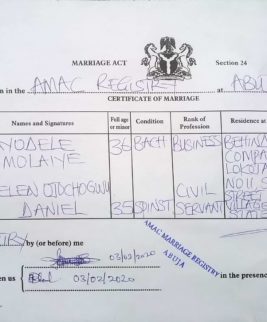 MARRIAGE ACT Section 24
en in the AMAC REGISTRY at ABU
CERTIFICATE OF MARRIAGE
Names and Signatures Full age or minor Condition Rank of Profession Residence at
YODELE 36 BACH BUSINESS BEHIND
MOLAIYE COMPA
LOKOJA
ELEN OJOCHOGWU CIVIL NO 11, S
DANIEL 35 SPINST SERVANT VILLAGE
STATE
AMAC MARRIAGE REGISTRY
ABUJA
by (or before) me
03/02/2020
en us 03/02/2020 in the presenc